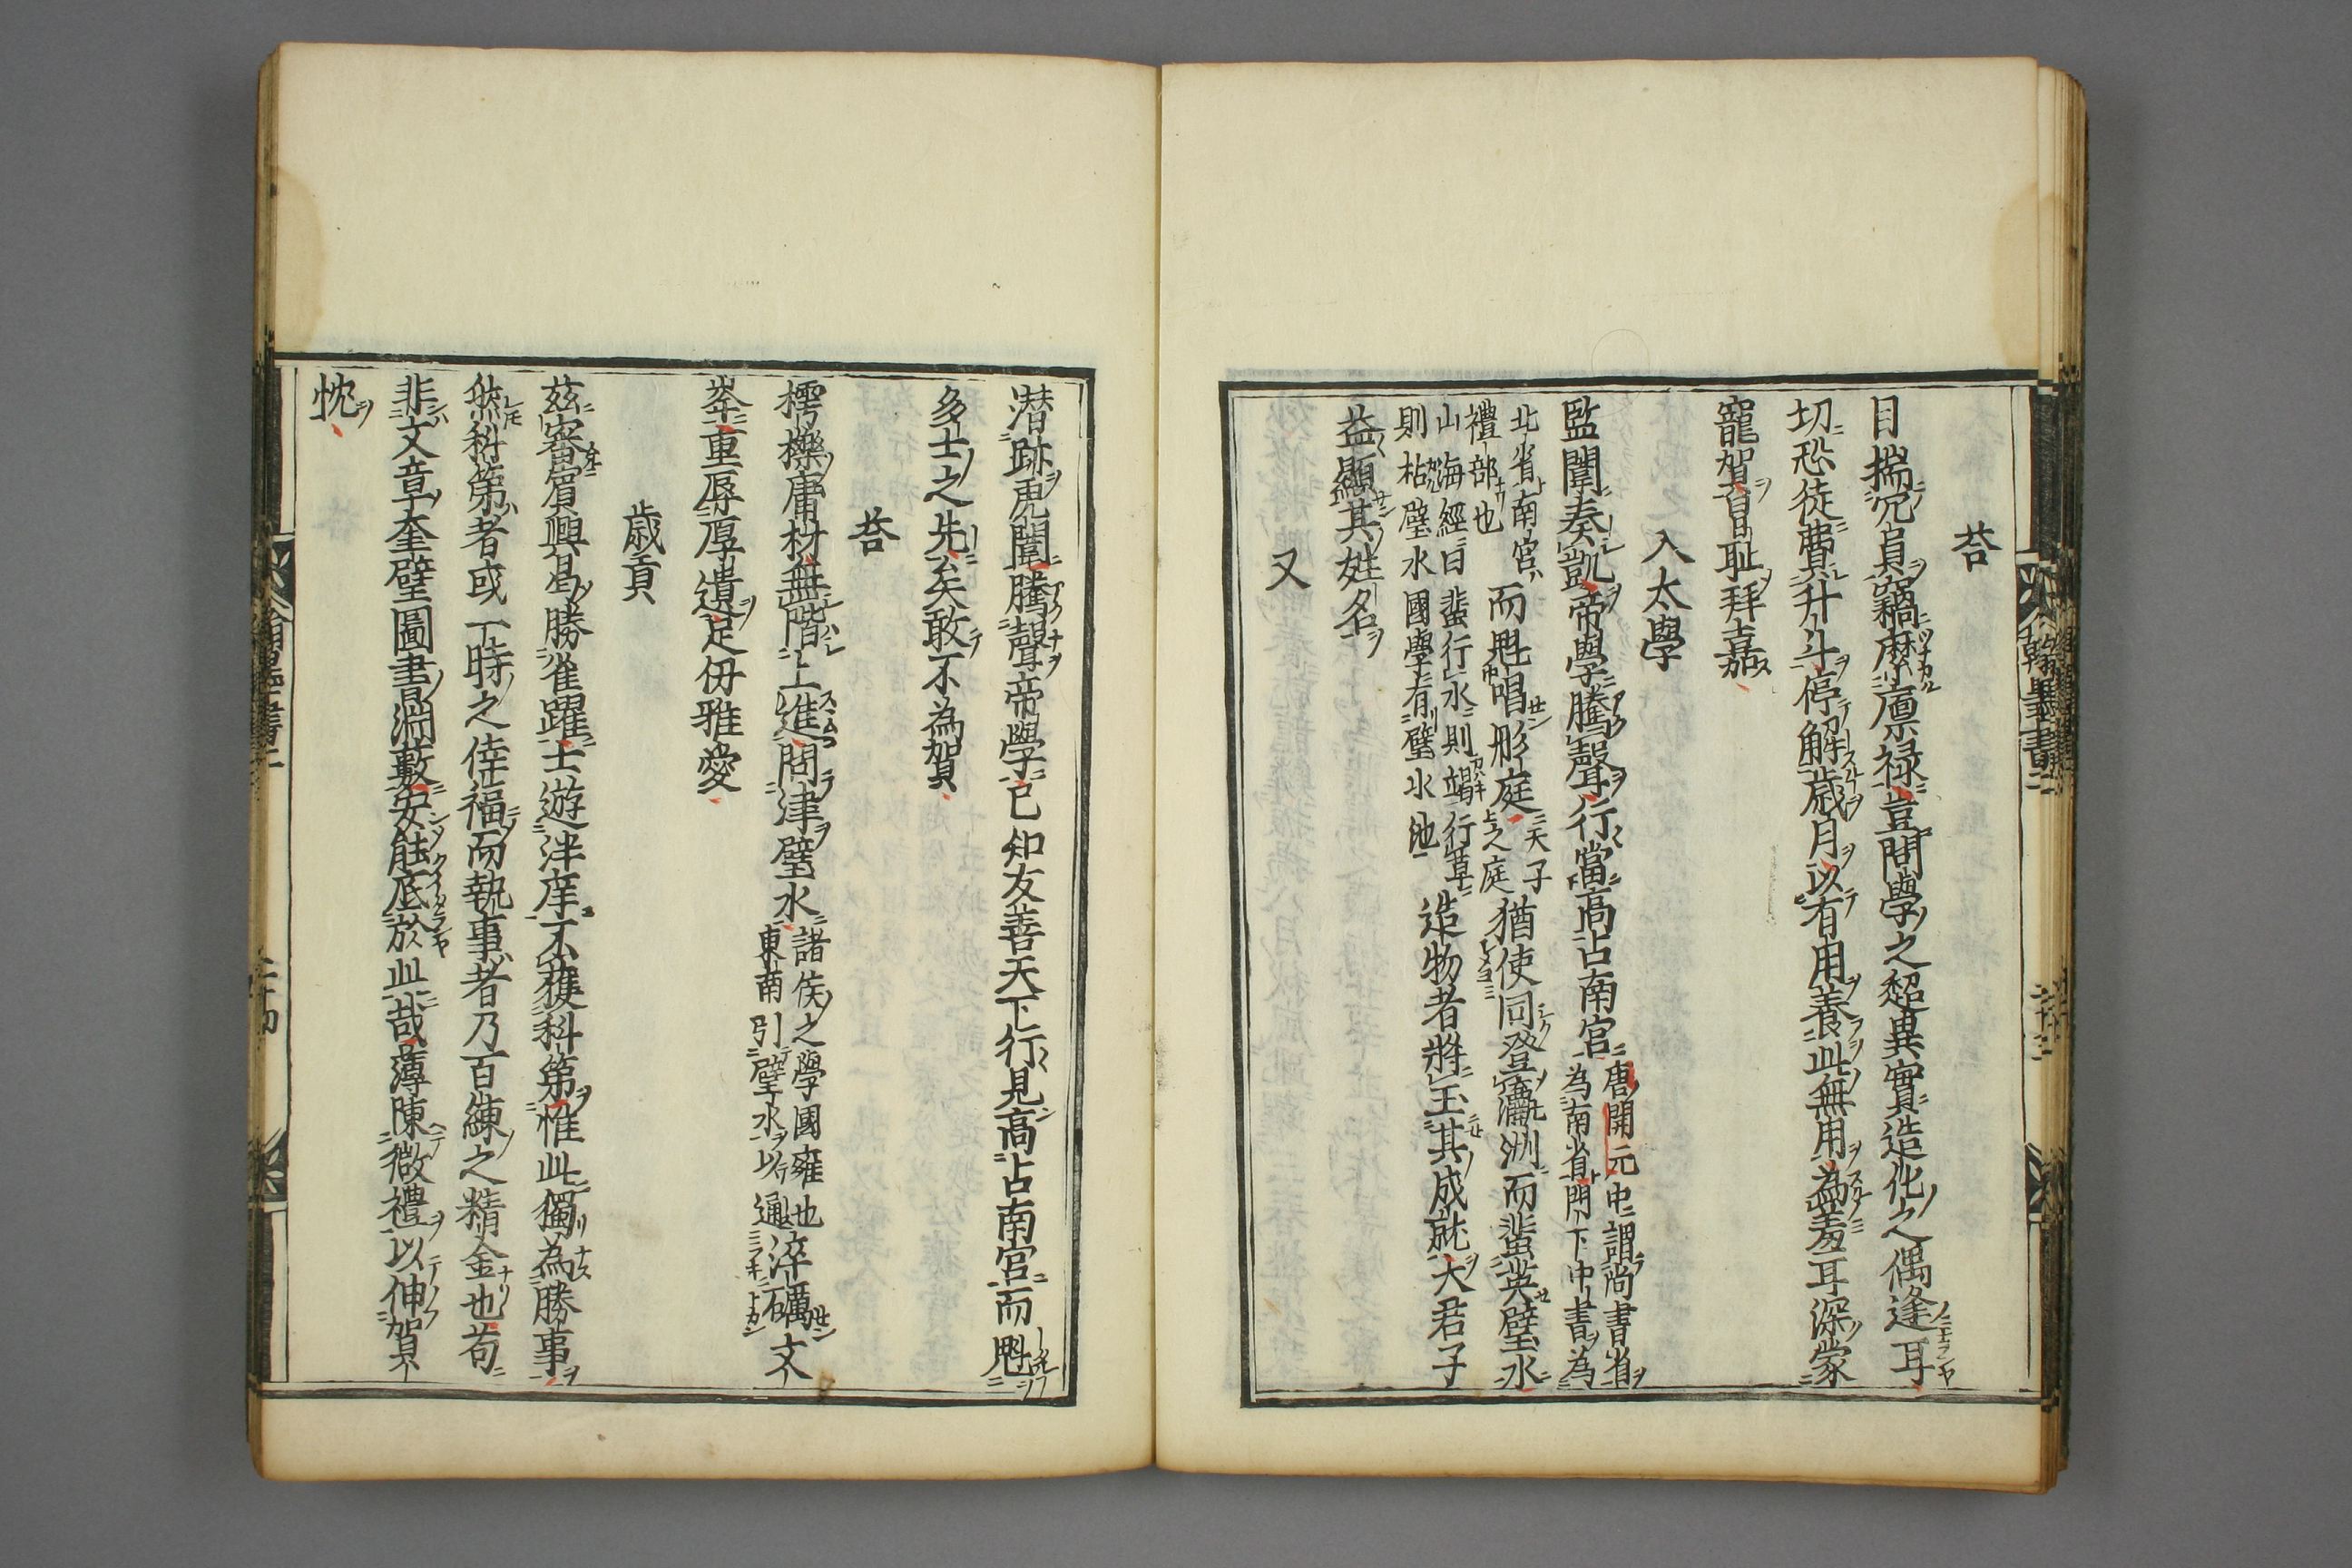 荅
目揣冗員竊縻廪禄豈問學之超異實造化之偶逢耳
切恐徒費升斗停解歳月以有用養此無用為羞耳深蒙
寵賀自耻拜嘉
入太學
監闈奏凱帝學騰聲行當高占南宫
唐開元中謂尚書省
為南省門下中書為
北省南宮
禮部也
而魁唱彤庭
天子
之庭
猶使同登瀛洲而蜚英璧水
山海經曰蜚行水則竭行草
則枯璧水國學有璧水池
造物者將玉其成就大君子
益顯其姓名
又
潜跡虎闈騰聲帝學已知友善天下行見高占南宫而魁
多士之先矣敢不為賀
荅
樗櫟庸材無階上進問津璧水
諸侯之學國雍也
東南引璧水以通
淬礪文
峯重辱厚遺足伻雅愛
歳貢
茲審賔興曷勝雀躍士遊泮庠不獲科第惟此獨為勝事
然科第者或一時之倖福而執事者乃百練之精金也苟
非文章奎璧圖書淵藪安能底於此哉薄陳微禮以伸賀
忱